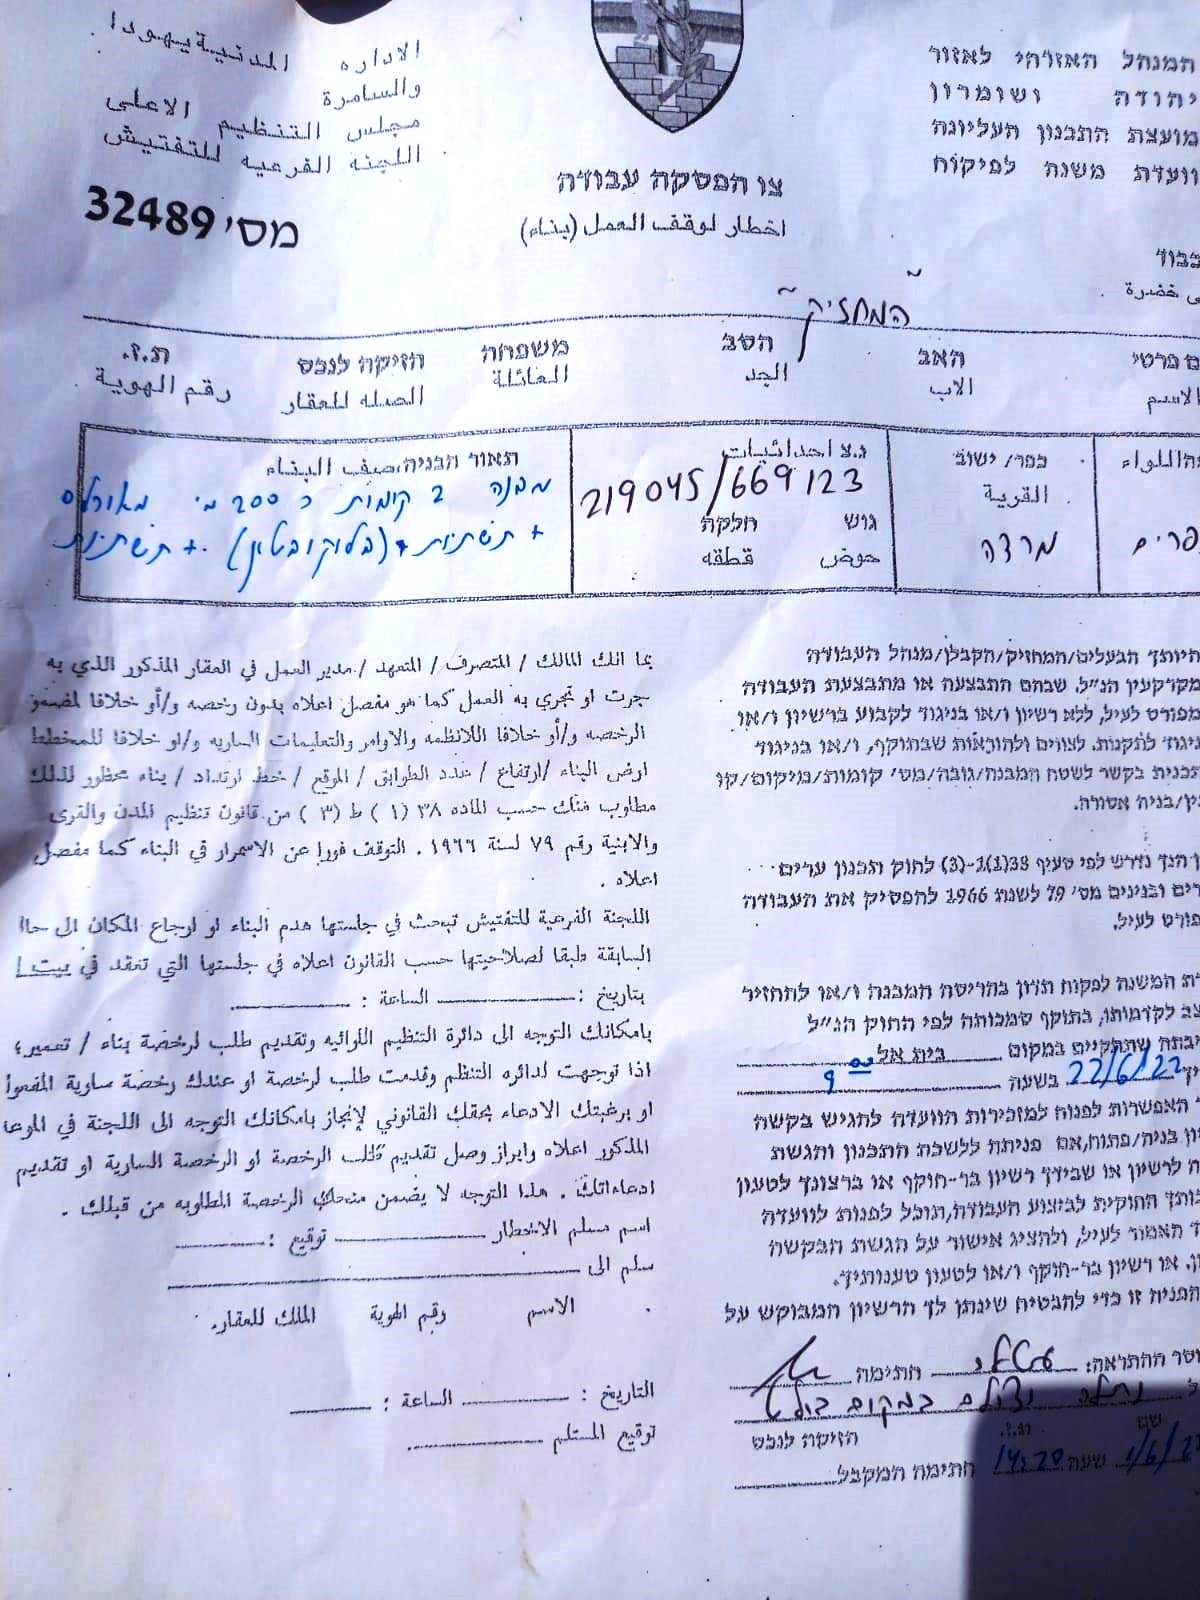 המנהל האזרחי לאזור
יהודה ושומרון
מועצת התכנון העליונה
וועדת משנה לפיקוח
الاداره المدنية يهودا
والسامرة
مجلس التنظيم الاعلى
اللجنة الفرعيه للتفتيش
צו הפסקה עבודה
اخطار لوقف العمل (بناء)
מס' 32489
"המחזיק"
האב הסב משפחה חזיקה לנכס ת.ז.
الاسم الاب الجد العائلة الصله للعقار رقم الهوية
כפר/ ישוב
القرية
מרדה
נ.צ احداثيات
219045/669123
גוש חלקה
حوض قطقه
תאור הבניה/صيف البناء
מבנה 2 קומות כ 200 מ'
+ תשתיות (בלוקובטון) + תשתיות
חיותך הבעלים/המחזיק/הקבלן/מנהל העבודה
מקרקעין הנ"ל. שבהם התבצעה או מתבצעת העבודה
מפורט לעיל, ללא רשיון ו/או בניגוד לקבוע ברשיון ו/או
יגוד לתקנות. לצווים ולהוראות שבתוקף, ו/או בניגוד
תכנית בקשר לשטח המבנה/גובה/מס' קומות/מיקום/קו
ין/בניה אסורה.
ן הנך נדרש לפי סעיף 38(1)1-(3) לחוק תכנון ערים
רים ובנינים מס' 79 לשנת 1966 להפסיק את העבודה
פורט לעיל.
דת המשנה לפקוח תדון בהריסת המבנה ו/או להחזיר
צב לקדמותו, בתוקף סמכותה לפי החוק הנ"ל
יבתה שתקיים במקום בית אל
22/6/22 בשעה 9 00
האפשרות לפנות למזכירות הוועדה להגיש בקשה
ון בניה/פתוח,אם פניתה ללשכת התכנון והגשת
ה לרשיון או שבידך רשיון בר-תוקף או ברצונך לטעון
כותך החוקית לביצוע העבודה,תוכל לפנות לוועדה
ד האמור לעיל, ולהציג אישור על הגשת הבקשה
ון. או רשיון בר-תוקף ו/או לטעון טענותיך.
הפניה זו כדי להבטיח שינתן לך הרשיון המבוקש על
וסר ההתראה: חתימה
במקום בולט
שם ת.ז. חזיקה לנכס
1/6/22 שעה 14:20 חתימה המקבל
بما انك المالك / المتصرف / المتعهد / مدير العمل في العقار المذكور الذي به
جرت او تجري به العمل كما هو مفصل اعلاه بدون رخصه و/أو خلافا لمضمو
الرخصه و/أو خلافا للانظمه والاوامر والتعليمات الساريه و/او خلافا للمخطط
ارض البناء /ارتفاع / عدد الطوابق / الموقع / خط ارتداد / بناء محظور لذلك
مطلوب منك حسب الماده ٣٨ (١) ط (٣) من قانون تنظيم المدن والقرى
والابنية رقم ٧٩ لسنة ١٩٦٦ . التوقف فورا عن الاسمرار في البناء كما مفصل
اعلاه .
اللجنة الفرعية للتفتيش تبحث في جلستها هدم البناء او ارجاع المكان الى حا
السابقة طبقا لصلاحيتها حسب القانون اعلاه في جلستها التي تعقد في بيت
بتاريخ : الساعة :
بامكانك التوجه الى دائرة التنظيم اللوائيه وتقديم طلب لرخصة بناء / تعمير؛
اذا توجهت لدائره التنظم وقدمت طلب لرخصة او عندك رخصة سارية المفعو
او برغبتك الادعاء بحقك القانوني لإنجاز بامكانك التوجه الى اللجنة في الموعا
المذكور اعلاه وابراز وصل تقديم طلب الرخصة او الرخصة السارية او تقديم
ادعاءاتك . هذا التوجه لا يضمن منحك الرخصة المطلوبه من قبلك .
اسم مسلم الاخطار توقيع :
سلم الى
الاسم رقم الهوية الملك للعقار.
التاريخ : الساعة :
توقيع المستلم